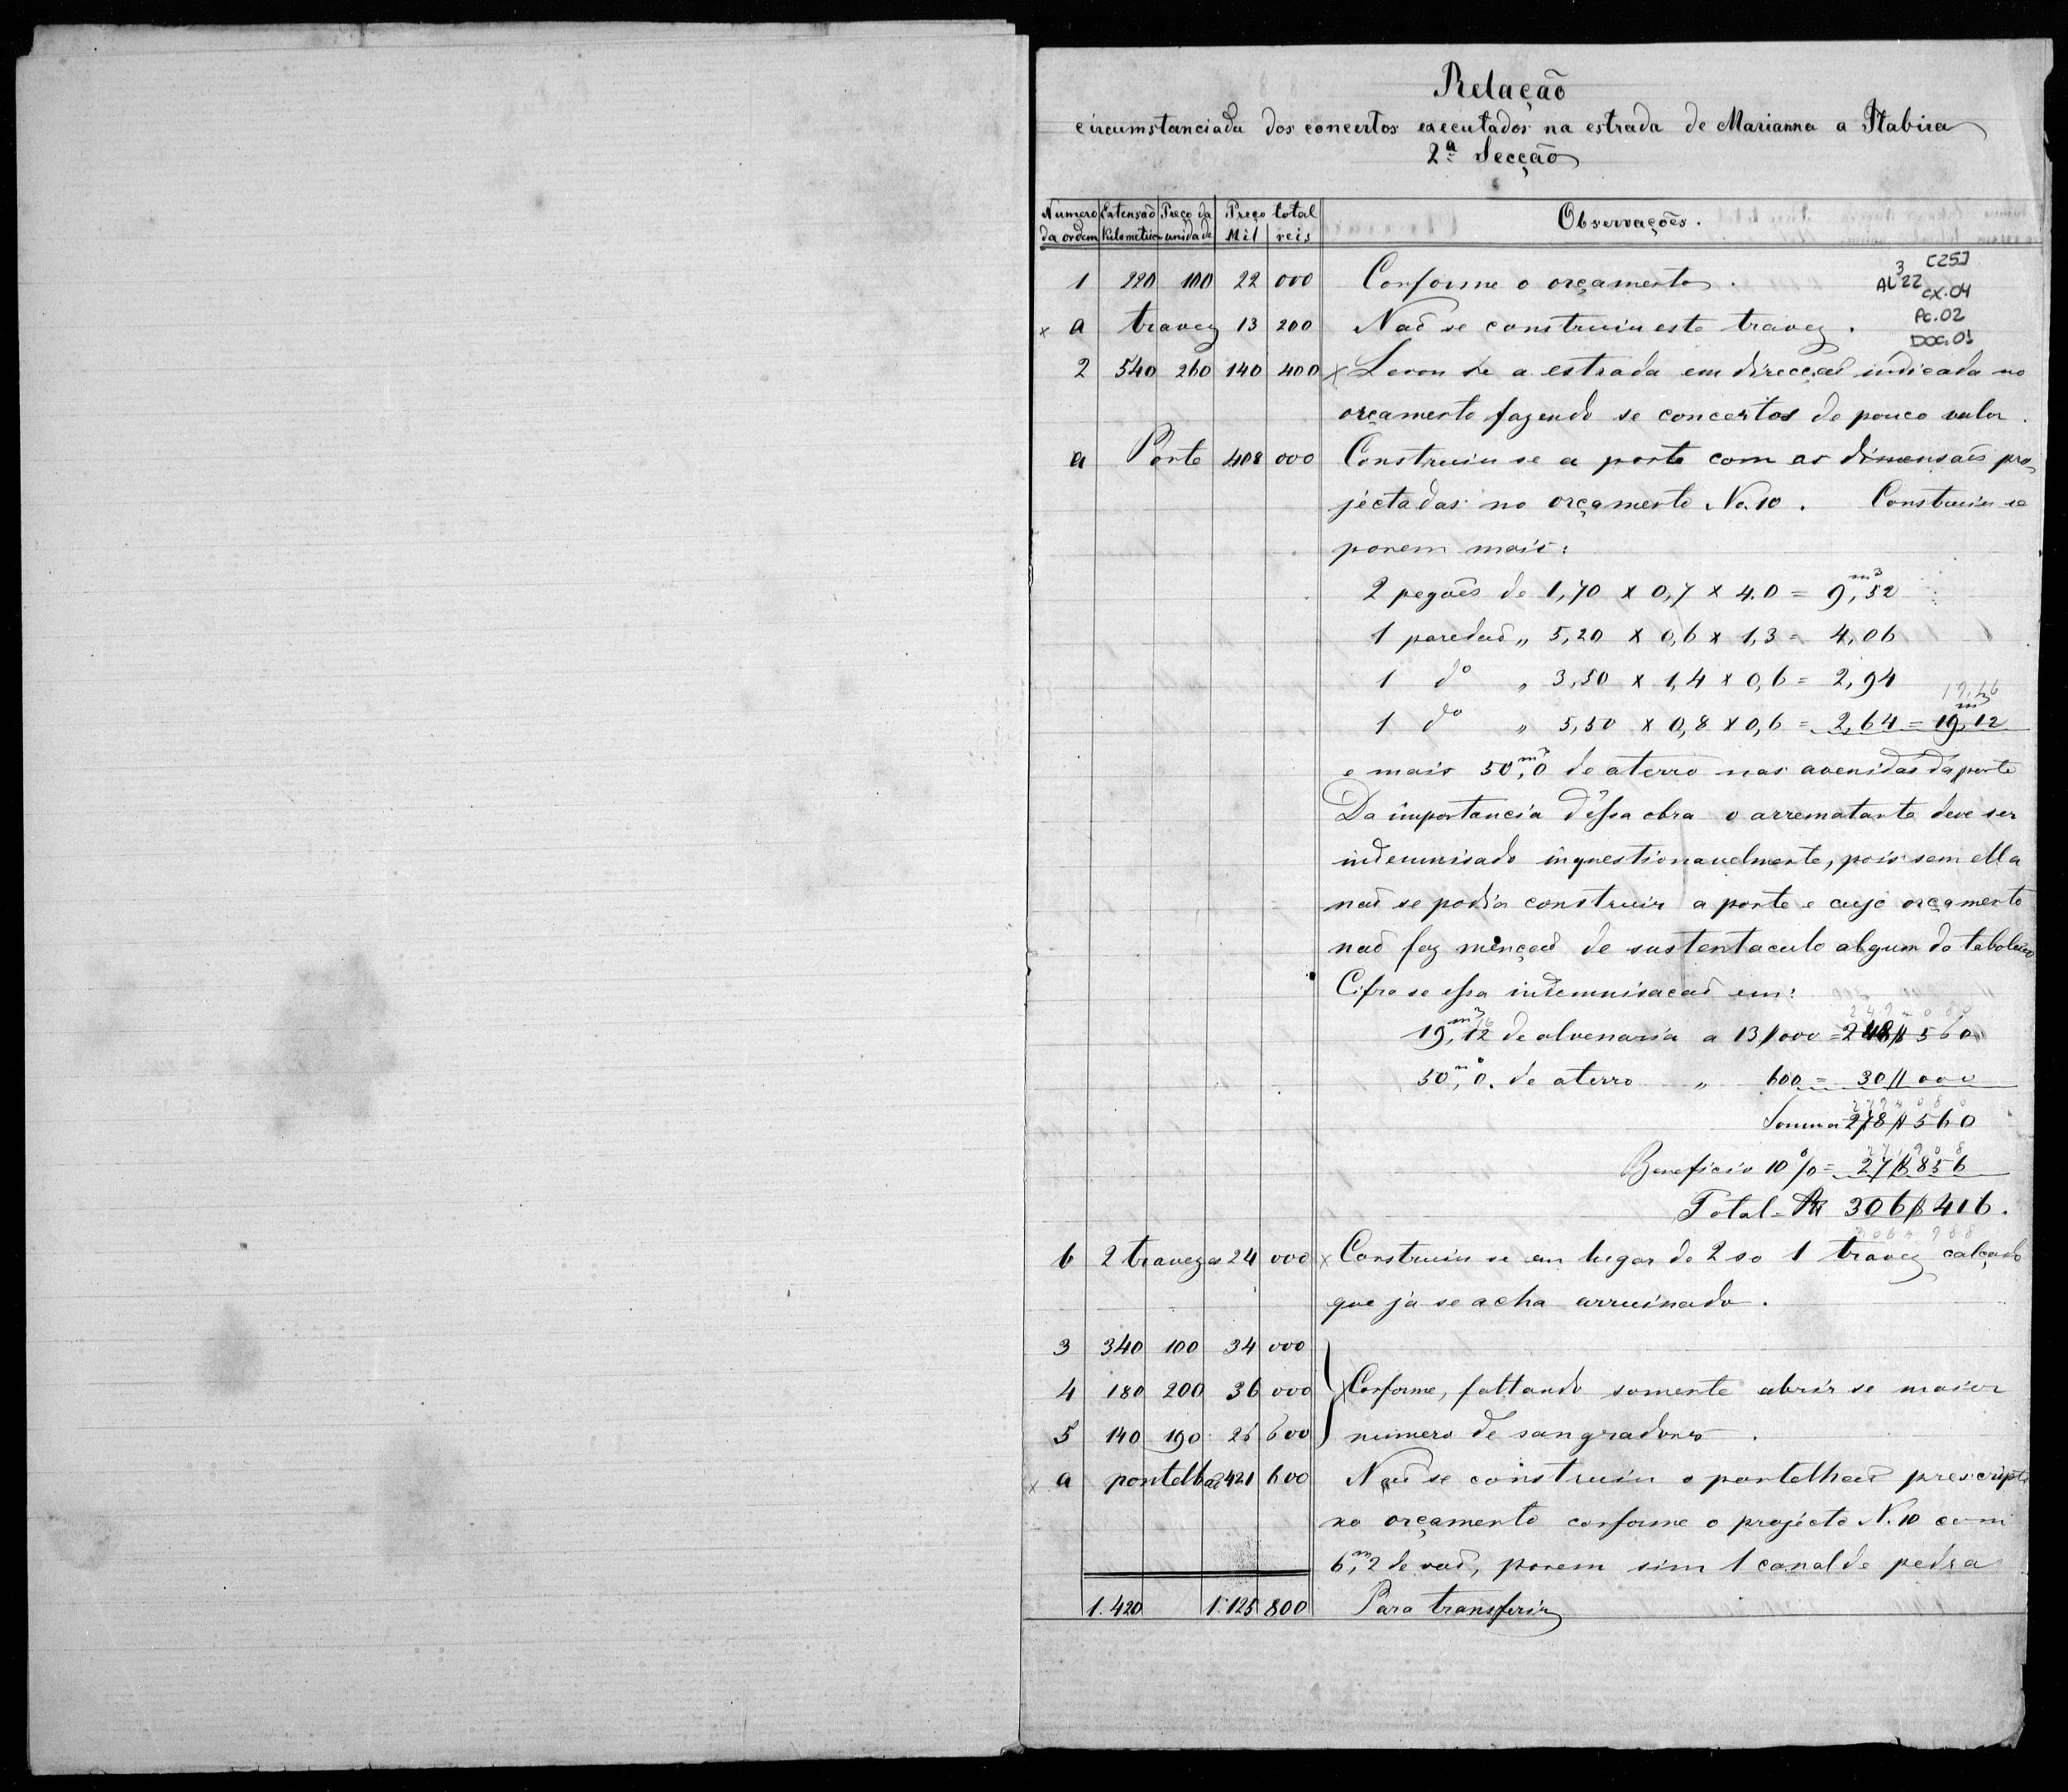 Relação
circumstanciada dos concertos executados na estrada de Marianna a Itabira
2ª Secção
Numero da ordem | Extensaõ kilometrica | Preço da unidade | Preço total Mil reis | Observações.
[25]
AL³22
cx.04
Pc.02
Doc.01
1 220 100 22 000 Conforme o orçamento.
x a travez 13 200 Naõ se construiu este travez.
2 540 260 140 400 x Levou se a estrada em direcçaõ indicada no
orçamento fazendo se concertos de pouco valor.
a Ponte 408 000 Construiu se a ponte com as dimensaõs pro-
jectadas no orçamento No. 10. Construiu se
porem mais:
2 pegoẽs de 1,70 x 0,7 x 4.0 = 9,ᵐ³52
1 paredaõ „ 5,20 x 0,6 x 1,3 = 4,06
1 dº „ 3,50 x 1,4 x 0,6 = 2,94
19,16
1 dº „ 5,50 x 0,8 x 0,6 = 2,64 = 19,ᵐ³12
e mais 50,ᵐ³0 de aterro nas avenidas da ponte
Da importancia d'essa obra o arrematante deve ser
indemnisado inquestionavelmente, pois sem ella
naõ se podia construir a ponte e cujo orçamento
naõ faz mençaõ de sustentaculo algum do taboleiro
Cifra se essa indemnisacaõ em:
249 080
19,ᵐ³12 de alvenaria a 13$000 = 248$560
50,ᵐ³0. de aterro „ 600 = 30$000
279 080
Somma 278$560
27,908
Beneficio 10% = 27$856
Total = Rs 306$416.
306 988
b 2 travezes 24 000 x Construiu se em lugar de 2 so 1 travez calçado
que já se acha arruinado.
3 340 100 34 000
4 180 200 36 000 x Conforme, faltando somente abrir se maior
5 140 190 26 600 numero de sangradores.
x a pontelhaõ 421 600 Naõ se construiu o pontelhaõ prescripto
no orçamento conforme o projécto N. 10 com
6,ᵐ2 de vaõ, porem sim 1 canal de pedra
1.420 1:125 800 Para transferir